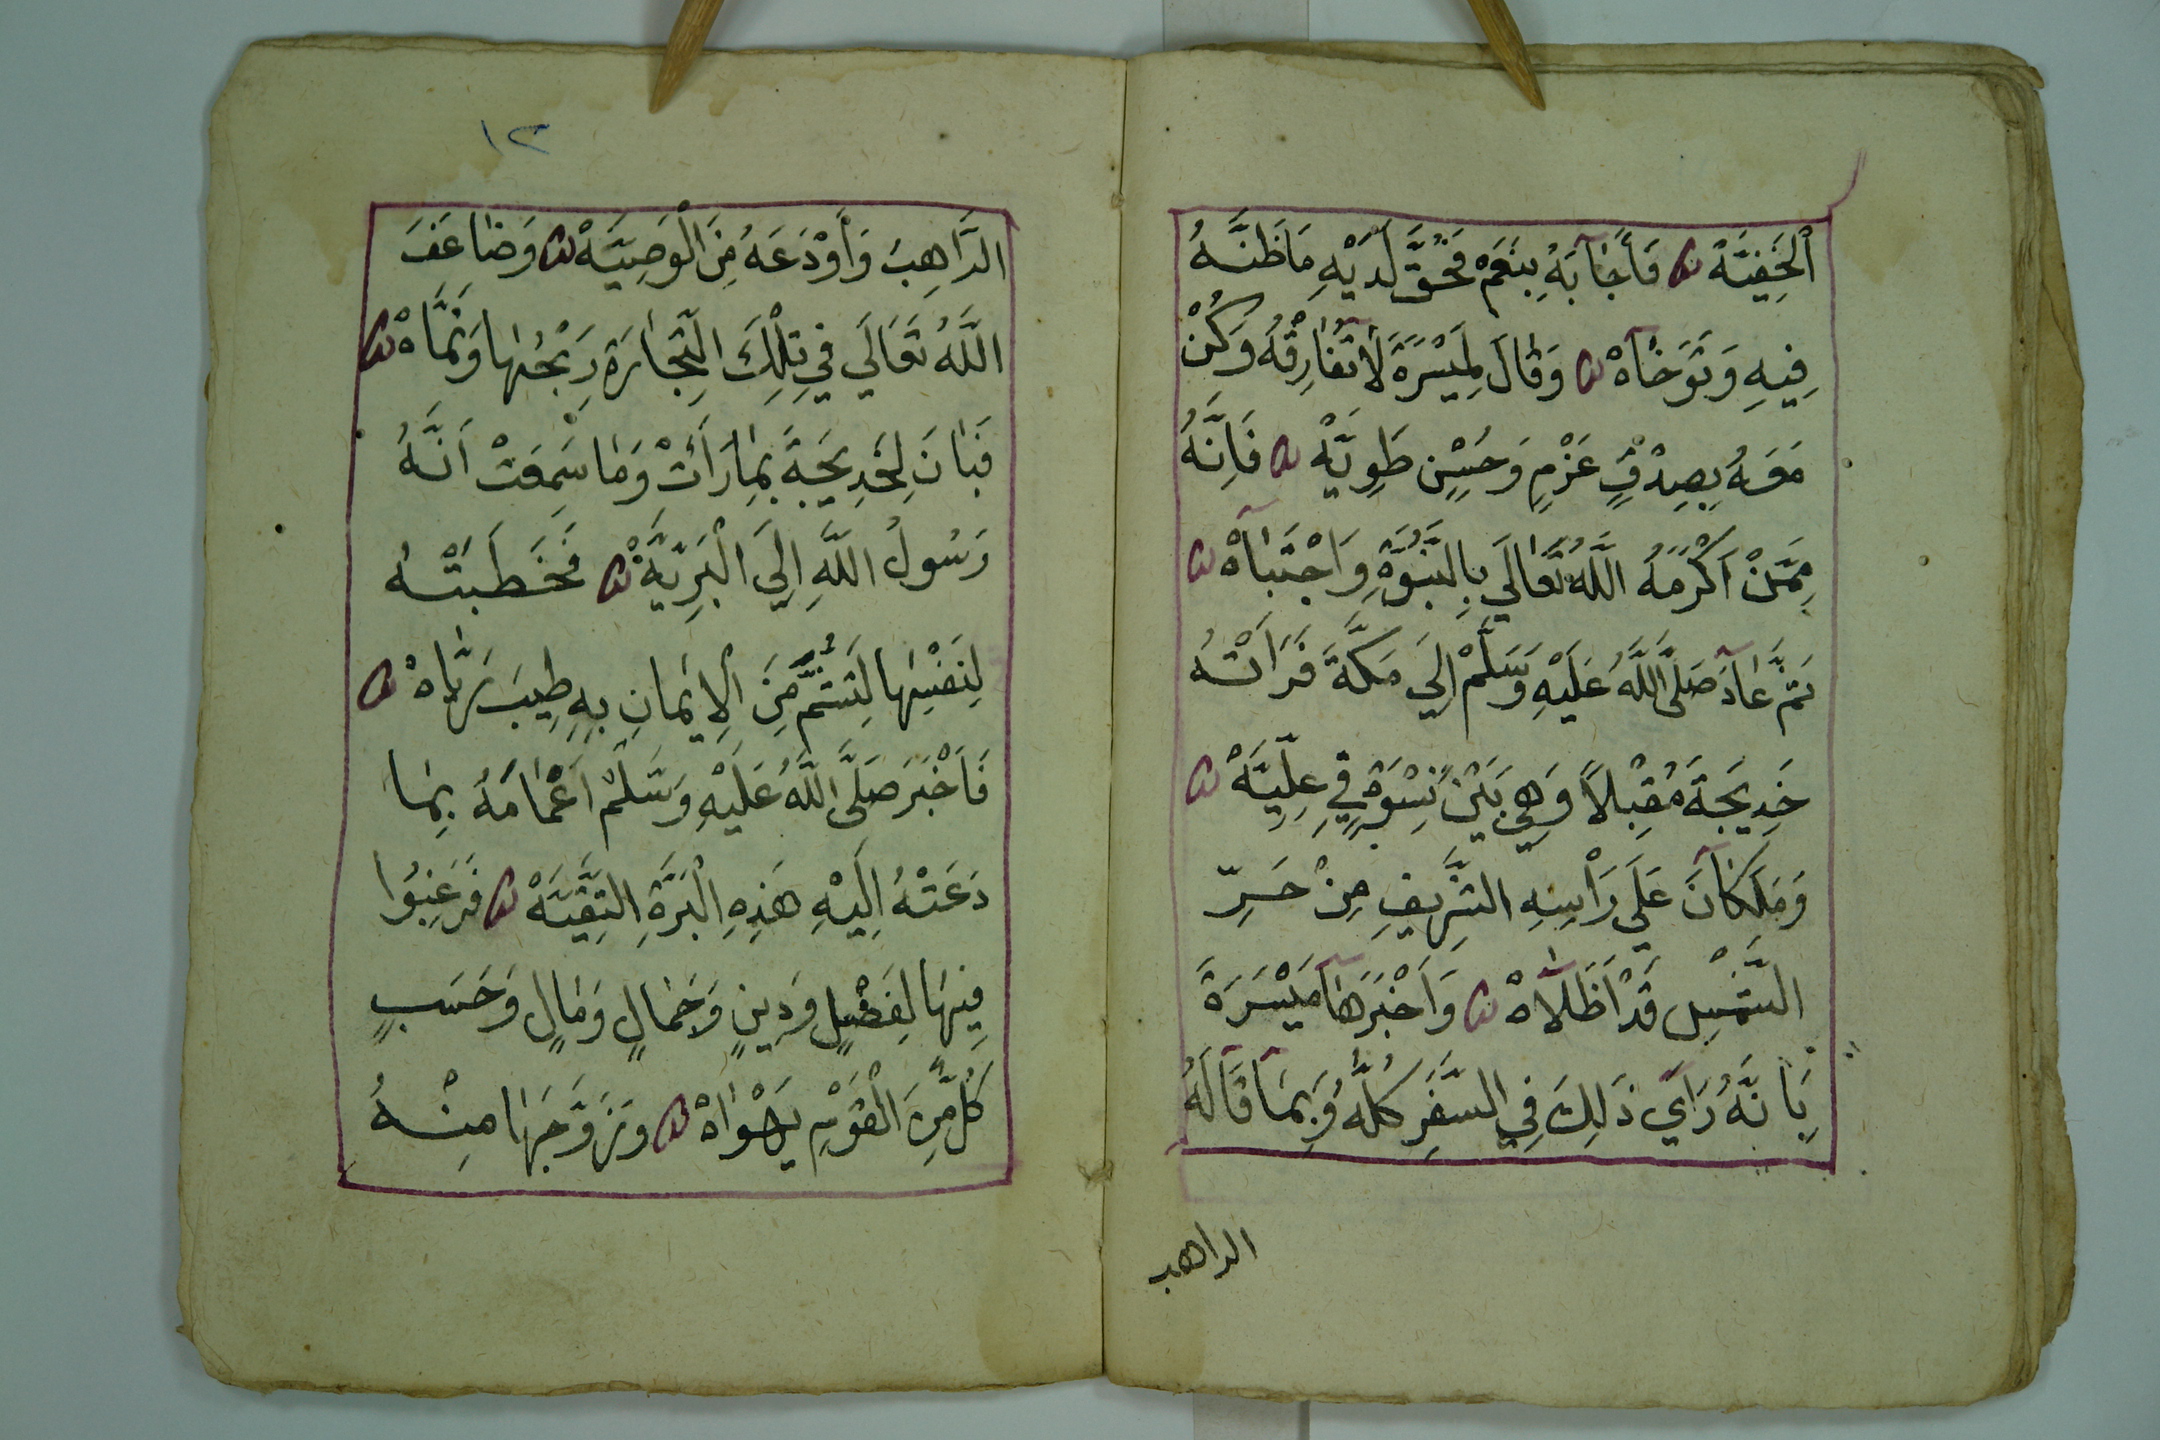 اَلْخَفِيَّةْ فَأَجَابَهُ بِنَعَمْ فَحُقَّ لَدَيْهِ مَاظَنَّهُ
فِيهِ وَتَوَخَّاهْ وَقَالَ لِمَيْسَرَةَ لَا تُفَارِقْهُ وَكُنْ
مَعَهُ بِصِدْقٍ عَزْمٍ وَحُسْنِ طَوِيَّةْ فَاِنَّهُ
مِمَّنْ اَكْرَمَهُ اللَّهُ تَعَالَي بِالنُّبُوَّةِ وَاجْتَبَاهْ
ثمَّ عَادَ صَلَّى اللَّهُ عَلَيْهِ وَسَلَّمْ اِلَي مَكَّةَ فَرَاَتْهُ
خَدِيجَةَ مُقْبِلاً وَهِيَ بَيْنَ نِسْوَةٍ فِي عِلِّيَّةْ
وَمَلَكَانَ عَلَي رَاْسِهِ الشَّرِيفِ مِنْ حَرِّ
الشَّمْسِ قَدْاَظَلَّاهْ وَاَخْبَرَهَا مَيْسَرَةَ
بِاَنَّهُ رَاَي ذَلِكَ فِي السَّفَرِ كُلَّهُ وَبِمَا قَالَهُ
الراهب
١٢
الرَّاهِبَ وَأَوْدَعَهُ مِنَ الْوَصِيَّةْ وَضَاعَفَ
اللَّهُ تَعَالَي فِي تِلْكَ التِّجَارَةِ رِبْحُهَا وَنَمَّاهْ
فَبَانَ لِخَدِيجَةَ بِمَا رَاَتْ وَمَا سَمِعَتْ اَنَّهُ
رَسُولُ اللَّهِ اِلَيَ الْبَرِيَّةْ فَخَطَبَتْهُ
لِنَفْسِهَا لِتَشُمَّ مِنَ الْاِيمَانِ بِهِ طِيبَ رَيَّاهْ
فَاَخْبَرَ صَلَّى اللَّهُ عَلَيْهِ وَسَلَّمْ اَعْمَامَهُ بِمَا
دَعَتْهُ اِلَيْهِ هَذِهِ الْبَرَّةِ التَّقِيَّةْ فَرَغِبُوا
فِيهَا لِفَضْلٍ وَدِينٍ وَجَمَالٍ وَمَالٍ وَحَسَبٍ
كُلٌّ مِّنَ الْقَوْمِ يَهْوَاهْ وَتَزَوَّجَهَا مِنْهُ